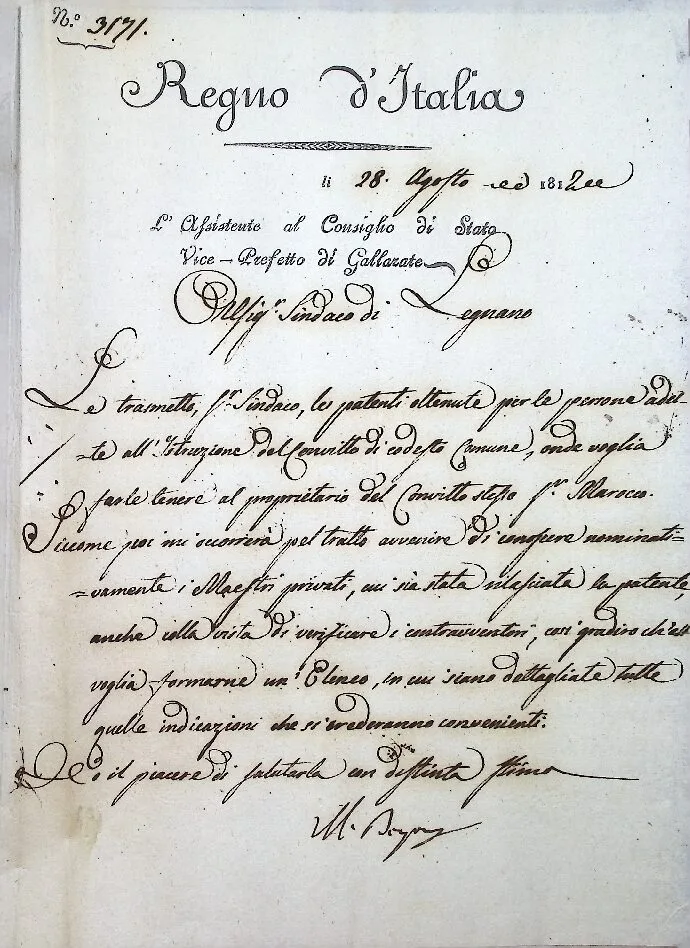 N.° 3171.
Regno d'Italia
li 28. Agosto 1812
L'Assistente al Consiglio di Stato
Vice-Prefetto di Gallarate
Al Sig.r Sindaco di Legnano
Le trasmetto, S.r Sindaco, le patenti ottenute per le persone adet-
=te all'Istruzione del Convitto di codesto Comune, onde voglia
farle tenere al proprietario del Convitto stesso S.r Marocco.
Siccome poi mi occorrerà pel tratto avvenire di conoscere nominati-
=vamente i Maestri privati, cui sia stata rilasciata la patente,
anche colla vista di verificare i contravventori, così gradirò ch'ella
voglia formarne un'Elenco, in cui siano dettagliate tutte
quelle indicazioni che si crederanno convenienti.
Ho il piacere di salutarla con distinta stima